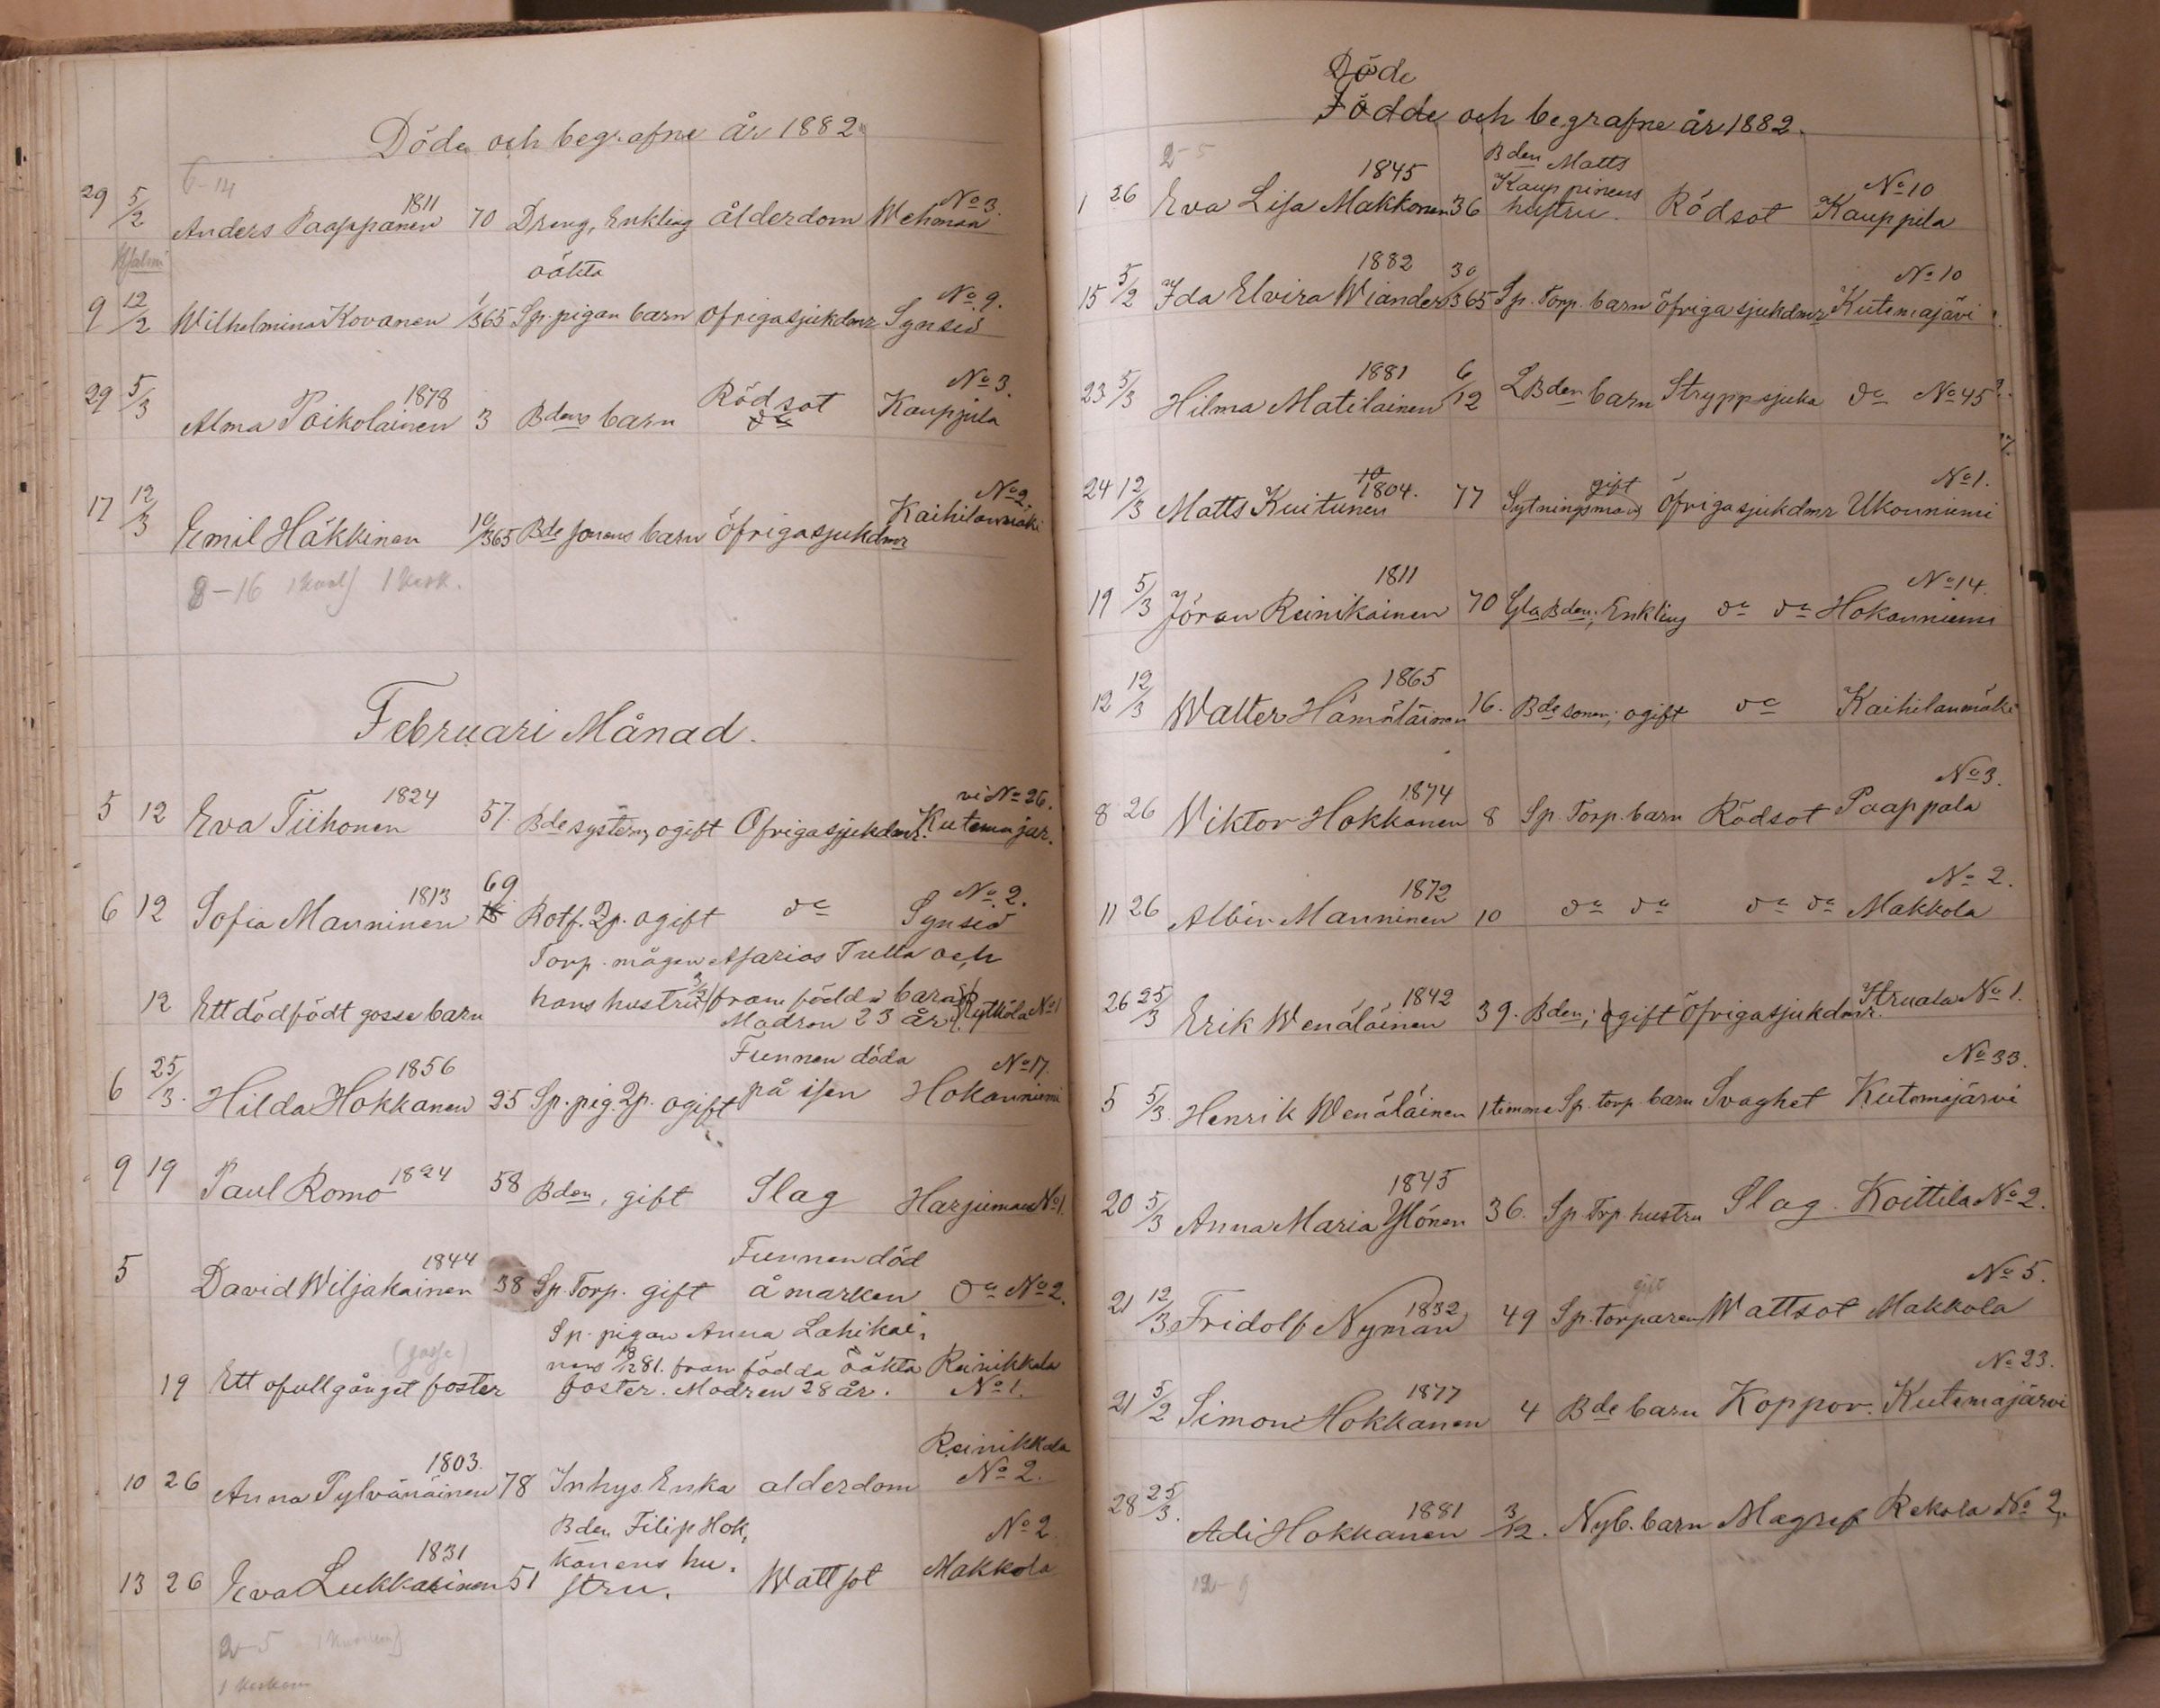 Döda och begrafne år 1882
6-14
29 5/2 Anders Paappanen 1811 70 Dreng, Enkling ålderdom Wehmaa No 3.
oäkta
9 12/2 Wilhelmina Kovanen 1/365 Sp. pigan barn Öfriga sjukdmr Synsiö No 9.
29 5/3 Alma Poikolainen 1878 3 Bdens barn Rödsot Kauppila No 3.
17 12/3 Emil Häkkinen 10/365 Bde sonens barn öfriga sjukdmr Kaihilanmäki No 2
8-16
Februari Månad.
5 12 Eva Tiihonen 1824 57. Bde system, ogift Öfriga sjukdmr. Kutemajär. vi No 26.
6 12 Sofia Manninen 1813 69 Rotf. Qp. ogift do Synsiö No 2.
Torp. mågen Asarias Tulla och
12 Ett dödfödt gosse barn hans hustrus framfödda barn Rytkölä No 1
Modren 23 år.
6 25/3. Hilda Hokkanen 1856 25 Sp. pig. Qp. ogift Funnen döda på isen Hokanniemi No 17.
9 19 Paul Romo 1824 58 Bden, gift Slag Harjumaa No 1.
5 David Wiljakainen 1844 38 Sp. Torp. gift Funnen död å marken do No 2.
Sp. pigan Anna Lahikai,
(gosse)
nens 81. fram födda oäkta Reinikkala
19 Ett ofullgånget foster foster. Modren 28 år. No 1.
10 26 Anna Pylvänäinen 1803. 78 Inhys Enka alderdom Reinikkala No 2.
13 26 Eva Lukkarinen 1831 51 Bden Filip Hok, kanens hu, stru. Wattsot Makkola No 2
2-5
Döde
Födde och begrafne år 1882.
2-5
1 26 Eva Lisa Makkonen 1845 36 Bden Matts Kauppinens hustru. Rödsot Kauppila No 10
15 5/2 Ida Elvira Wiander 1882 30/365 Sp. Torp. barn öfriga sjukdmr Kutemajärvi No 10
23 5/3 Hilma Matilainen 1881 6/12 LBden barn Strypsjuka do No 45
24 12/3 Matts Kuitunen 1804. 77 Sytningsman gift Öfriga sjukdmr Ukonniemi No 1.
19 5/3 Jöran Reinikainen 1811 70 Gla Bden; Enkling do do Hokanniemi No 14.
12 12/3 Walter Hämäläinen 1865 16. Bde sonen; ogift do Kaihilanmäki
8 26 Viktor Hokkanen 1874 8 Sp. Torp. barn Rödsot Paappala No 3.
11 26 Albin Manninen 1872 10 do do do do Makkola No 2.
26 25/3 Erik Wenäläinen 1842 39. Bden; gift Öfriga sjukdmr. Struala No 1.
5 5/3. Henrik Wenäläinen 1 timme Sp. torp. barn Svaghet Kutemajärvi No 33.
20 5/3 Anna Maria Ylönen 1845 36. Sp. Trp. hustru Slag. Koittila No 2.
21 12/3 Fridolf Nyman 1832 49 Sp. torparen gift Wattsot Makkola No 5.
21 5/2 Simon Hokkanen 1877 4 Bde barn Koppor. Kutemajärvi No 23.
28 25/3. Adi Hokkanen 1881 3/12. Nyb. barn Magref Rekola No 2.
12-9